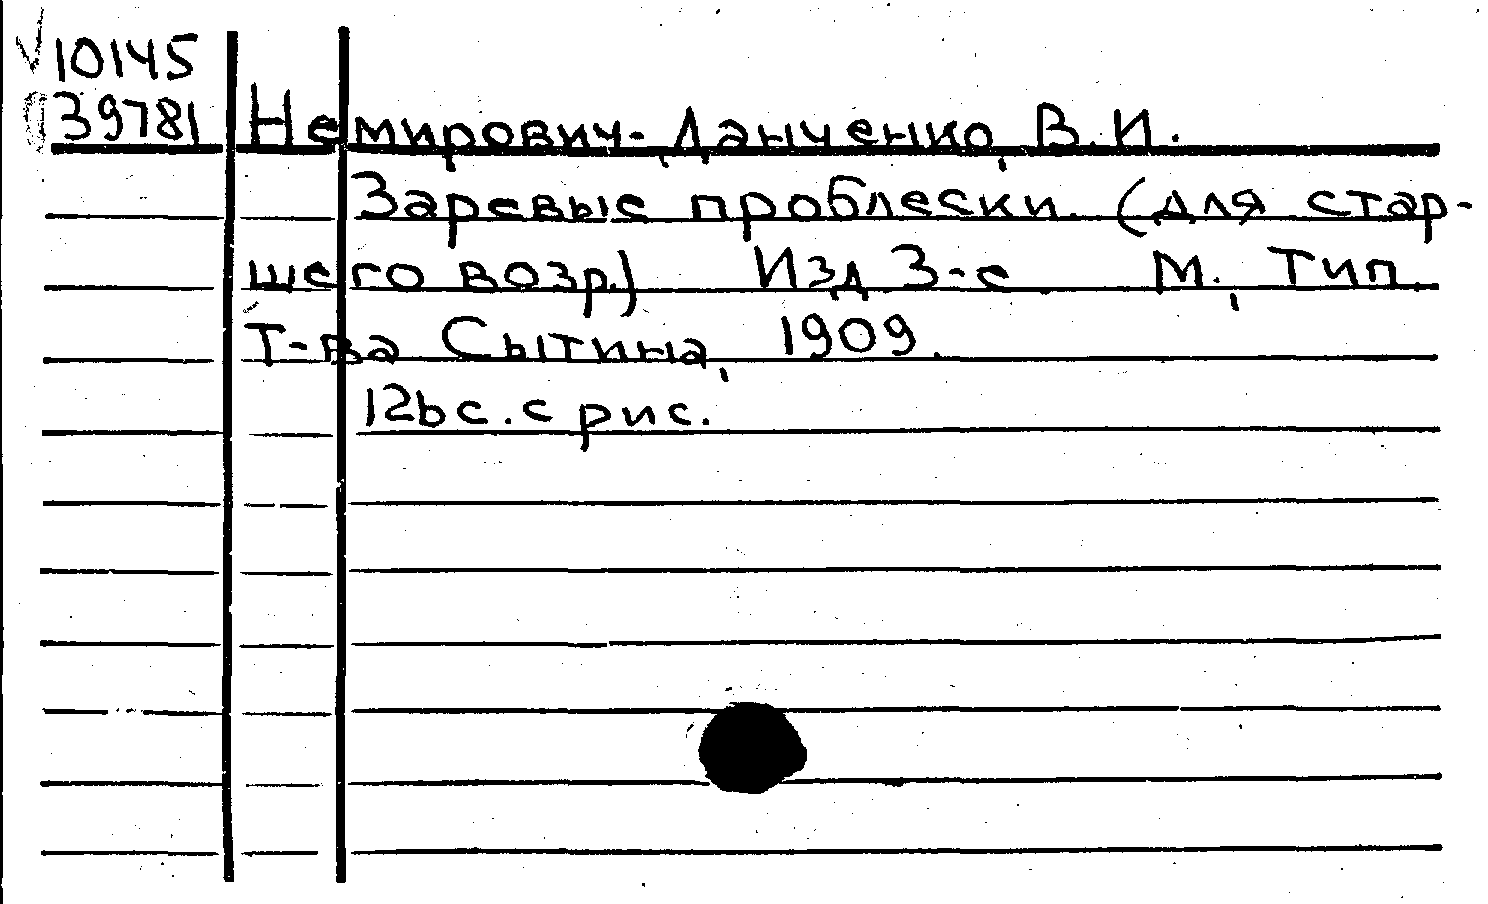 10145
39781 Немирович-Данченко, В.И.
Заревые проблески. (для стар-
шего возр.) Изд 3-е М., Тип.
Т-ва Сытина, 1909.
126с. с рис.